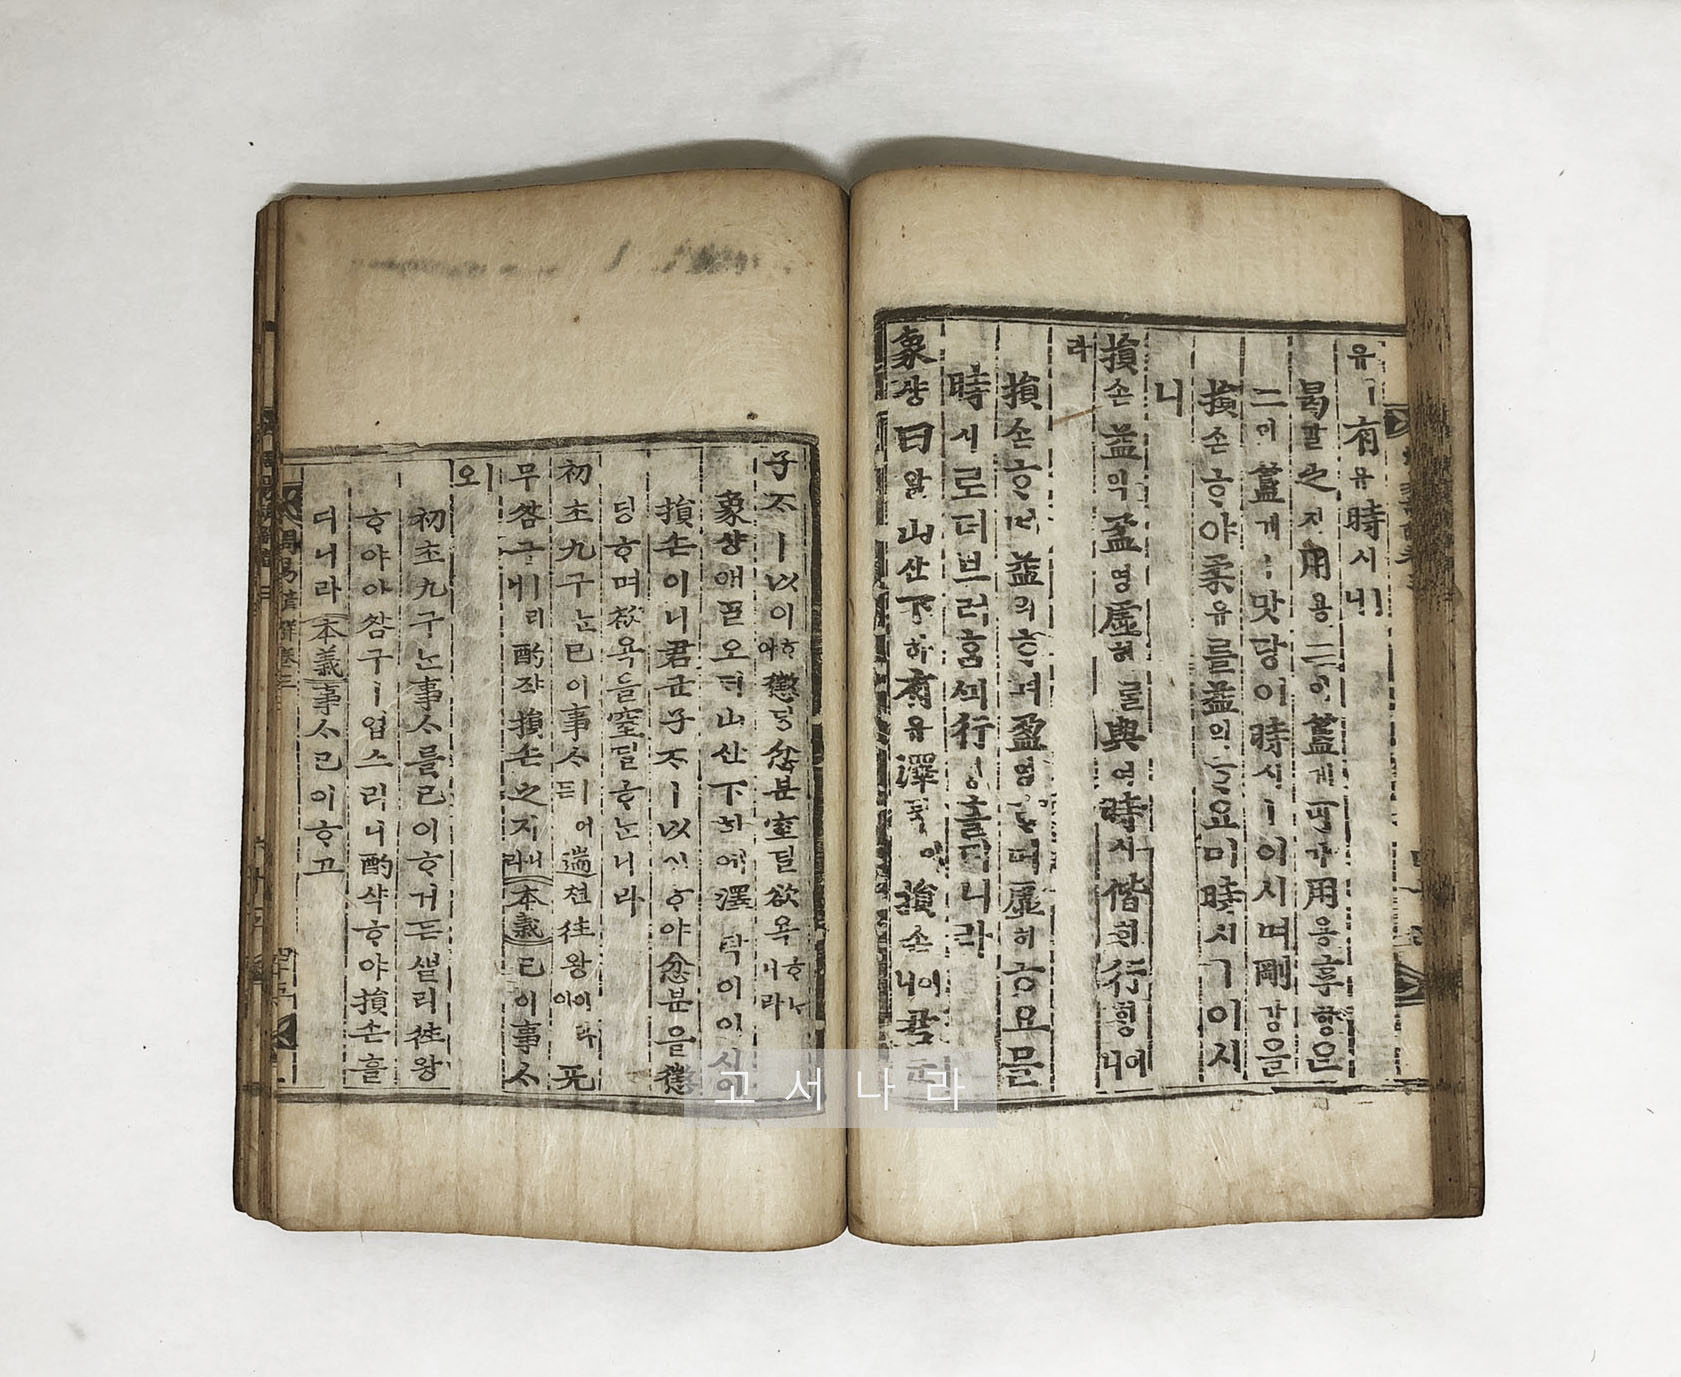 유ㅣ有유時시니
曷갈之지用용二이簋궤可가用용享향은
二이簋궤ㅣ맛당이時시ㅣ이시며剛강을
損손ᄒᆞ야柔유를益익ᄒᆞ욤이時시ㅣ이시
니
損손益익盈영虛허를與여時시偕ᄒᆡ行ᄒᆡᆼ이니
라
損손ᄒᆞ며益익ᄒᆞ며盈영ᄒᆞ며虛허ᄒᆞ욤을
時시로더브러ᄒᆞᆷᄭᅴ行ᄒᆡᆼᄒᆞᆯ디니라
象샹曰왈山산下하有유澤ᄐᆡᆨ이損손이니君군
子ᄌᆞㅣ以이ᄒᆞ야懲딩忿분窒딜欲욕ᄒᆞᄂᆞ니라
象샹애ᄀᆞᆯ오ᄃᆡ山산下하에澤ᄐᆡᆨ이이심이
損손이니君군子ᄌᆞㅣ以이ᄒᆞ야忿분을懲
딩ᄒᆞ며欲욕을窒딜ᄒᆞᄂᆞ니라
初초九구ᄂᆞᆫ已이事ᄉᆞㅣ어든遄쳔往왕이라아无
무咎구ㅣ리니酌쟉損손之지니라本義已이事ᄉᆞ
ㅣ오
初초九구ᄂᆞᆫ事ᄉᆞ를已이ᄒᆞ거든ᄲᆞᆯ리往왕
ᄒᆞ야아咎구ㅣ업스리니酌쟉ᄒᆞ야損손ᄒᆞᆯ
디니라本義事ᄉᆞ已이ᄒᆞ고
고서나라